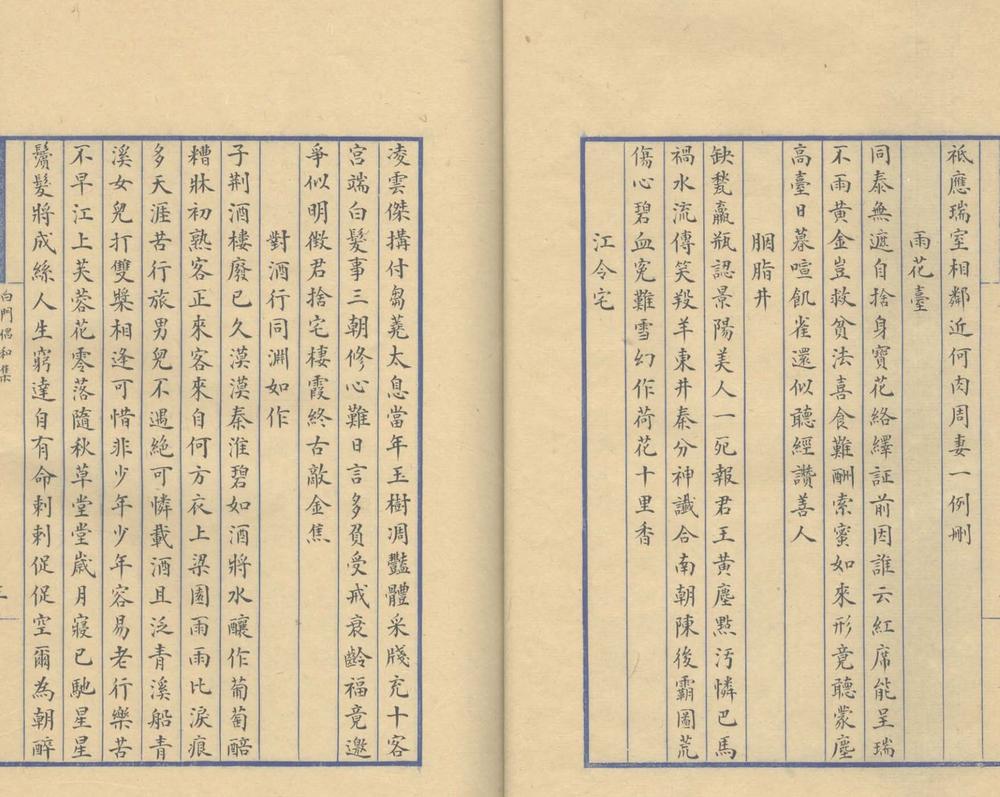 祗應瑞室相鄰近何肉周妻一例刪
雨花臺
同泰無遮自捨身寶花絡繹証前因誰云紅席能呈瑞
不雨黃金豈救貧法喜食難酬索蜜如來形竟聽蒙塵
高臺日暮喧飢雀還似聽經讚善人
胭脂井
缺甃羸瓶認景陽美人一死報君王黃塵點汚憐巴馬
禍水流傳笑羖羊東井秦分神讖合南朝陳後霸圖荒
傷心碧血寃難雪幻作荷花十里香
江令宅
凌雲傑搆付芻蕘太息當年玉樹凋豔體采牋充十客
宮端白髮事三朝修心難日言多負受戒衰齡福竟邀
爭似明徴君捨宅棲霞終古敲金焦
對酒行同淵如作
子荆酒樓廢已久漠漠秦淮碧如酒將水釀作葡萄醅
糟牀初熟客正來客來自何方衣上梁園雨雨比淚痕
多天涯苦行旅男兒不遇絶可憐載酒且泛青溪船青
溪女兒打雙槳相逢可惜非少年少年容易老行樂苦
不早江上芙蓉花零落隨秋草堂堂歲月寢已馳星星
鬚髮將成絲人生窮達自有命剌剌促促空爾為朝醉
白門倡和集
三